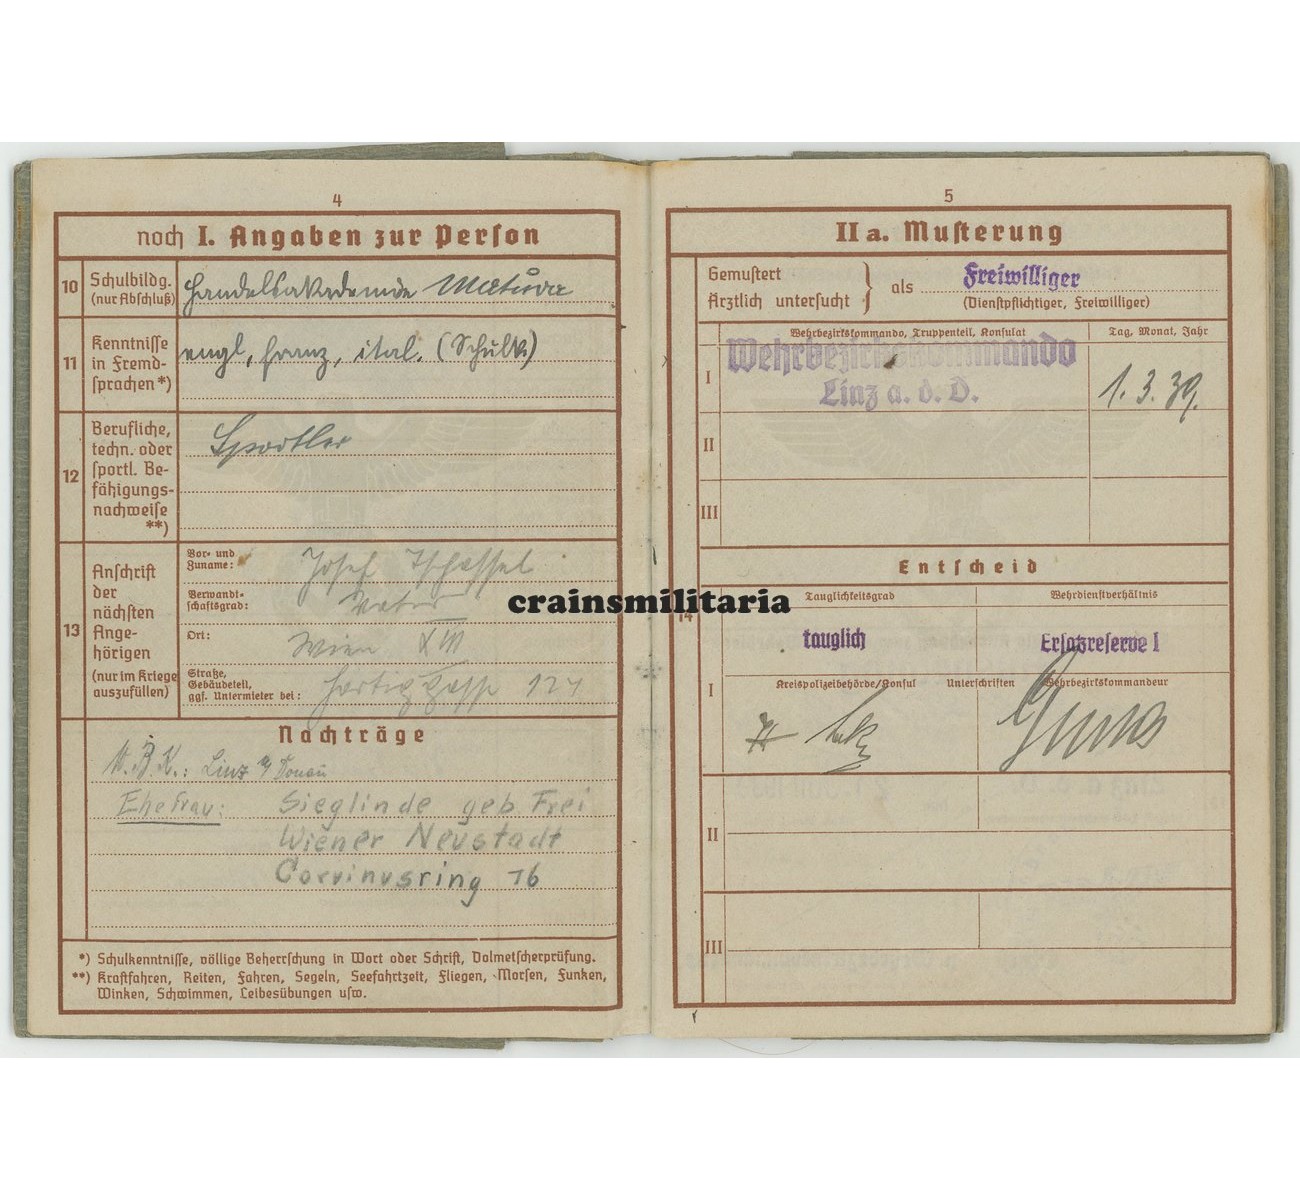 4
noch I. Angaben zur Person
10 Schulbildg. (nur Abschluß) Handelsakademie Matura
11 Kenntnisse in Fremd-sprachen*) engl, franz, ital. (Schulk.)
12 Berufliche, techn. oder sportl. Be-fähigungs-nachweise **) Sportler
13 Anschrift der nächsten Ange-hörigen (nur im Kriege auszufüllen)
Vor- und Zuname: Josef
Verwandt-schaftsgrad: Vater
Ort: Wien XIII
Straße, Gebäudeteil, ggf. Untermieter bei: 124
Nachträge
W.B.K.: Linz a/Donau
Ehefrau: Sieglinde geb. Frei
Wiener Neustadt
Corvinusring 16
*) Schulkenntnisse, völlige Beherrschung in Wort oder Schrift, Dolmetscherprüfung.
**) Kraftfahren, Reiten, Fahren, Segeln, Seefahrtzeit, Fliegen, Morsen, Funken,
Winken, Schwimmen, Leibesübungen usw.
5
IIa. Musterung
Gemustert
Ärztlich untersucht } als Freiwilliger
(Dienstpflichtiger, Freiwilliger)
Wehrbezirkskommando, Truppenteil, Konsulat
Tag, Monat, Jahr
I Wehrbezirkskommando
Linz a. d. D.
1. 3. 39.
II
III
Entscheid
Tauglichkeitsgrad
Wehrdienstverhältnis
14
tauglich
Ersatzreserve I
I
Kreispolizeibehörde/Konsul Unterschriften Wehrbezirkskommandeur
II
III
crainsmilitaria